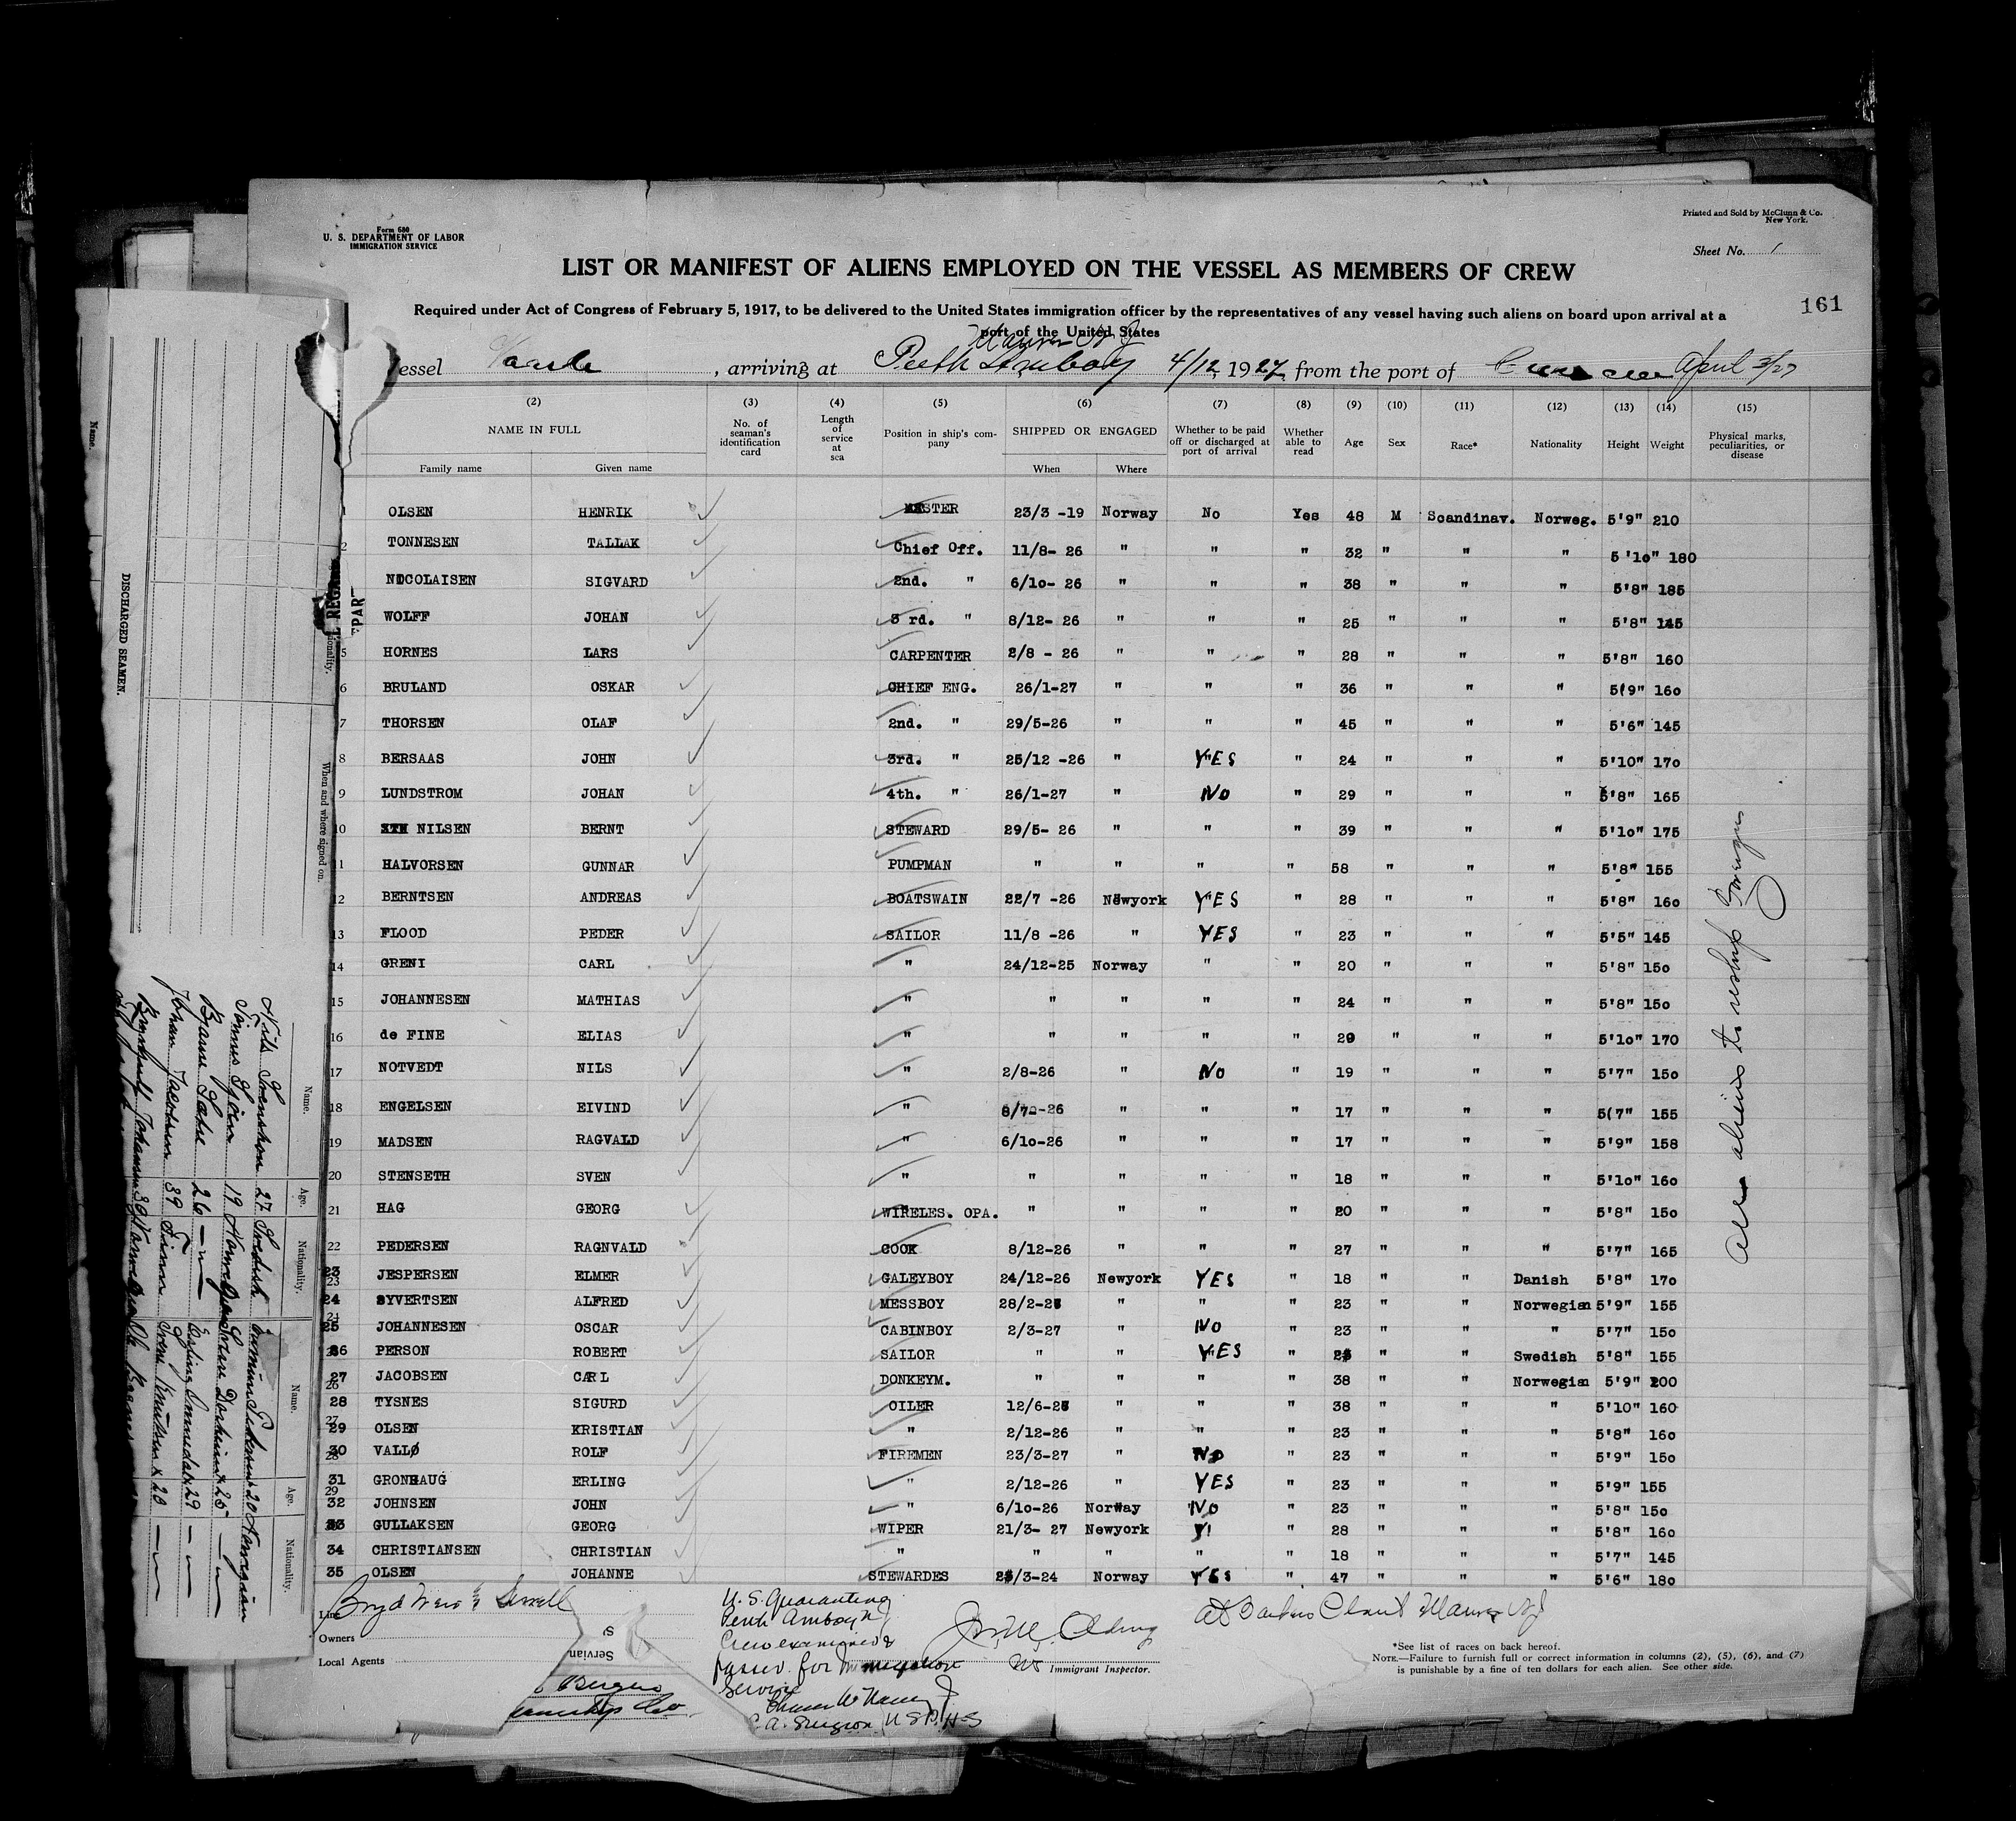 Form 680
U. S. DEPARTMENT OF LABOR
IMMIGRATION SERVICE
Printed and Sold by McClunn & Co.
New York.
Sheet No. 1
LIST OR MANIFEST OF ALIENS EMPLOYED ON THE VESSEL AS MEMBERS OF CREW
161
Required under Act of Congress of February 5, 1917, to be delivered to the United States immigration officer by the representatives of any vessel having such aliens on board upon arrival at a
port of the United States
essel , arriving at Perth Amboy 4/12, 1927, from the port of April 3/27
(2) (3) (4) (5) (6) (7) (8) (9) (10) (11) (12) (13) (14) (15)
NAME IN FULL No. of seaman's identification card Length of service at sea Position in ship's company SHIPPED OR ENGAGED Whether to be paid off or discharged at port of arrival Whether able to read Age Sex Race* Nationality Height Weight Physical marks, peculiarities, or disease
Family name Given name When Where
1 OLSEN HENRIK MASTER 23/3 -19 Norway No Yes 48 M Scandinav. Norweg. 5'9" 210
2 TONNESEN TALLAK Chief Off. 11/8- 26 " " " 32 " " " 5'10" 180
NICOLAISEN SIGVARD 2nd. " 6/10- 26 " " " 38 " " " 5'8" 185
WOLFF JOHAN 3 rd. " 8/12- 26 " " " 25 " " " 5'8" 145
5 HORNES LARS CARPENTER 2/8 - 26 " " " 28 " " " 5'8" 160
6 BRULAND OSKAR CHIEF ENG. 26/1-27 " " " 36 " " " 5(9" 160
7 THORSEN OLAF 2nd. " 29/5-26 " " " 45 " " " 5'6" 145
8 BERSAAS JOHN 3rd. " 25/12 -26 " YES " 24 " " " 5'10" 170
9 LUNDSTROM JOHAN 4th. " 26/1-27 " NO " 29 " " " 5'8" 165
10 NILSEN BERNT STEWARD 29/5- 26 " " " 39 " " " 5'10" 175
11 HALVORSEN GUNNAR PUMPMAN " " " " 58 " " " 5'8" 155
12 BERNTSEN ANDREAS BOATSWAIN 22/7 -26 Newyork YES " 28 " " " 5'8" 160
13 FLOOD PEDER SAILOR 11/8 -26 " YES " 23 " " " 5'5" 145
14 GRENI CARL " 24/12-25 Norway " " 20 " " " 5'8" 150
15 JOHANNESEN MATHIAS " " " " " 24 " " " 5'8" 150
16 de FINE ELIAS " " " " " 29 " " " 5'10" 170
17 NOTVEDT NILS " 2/8-26 " NO " 19 " " " 5'7" 150
18 ENGELSEN EIVIND " 8/7--26 " " " 17 " " " 5(7" 155
19 MADSEN RAGVALD " 6/10-26 " " " 17 " " " 5'9" 158
20 STENSETH SVEN " " " " " 18 " " " 5'10" 160
21 HAG GEORG WIRELES. OPA. " " " " 20 " " " 5'8" 150
22 PEDERSEN RAGNVALD COOK 8/12-26 " " " 27 " " " 5'7" 165
23 JESPERSEN ELMER GALEYBOY 24/12-26 Newyork YES " 18 " " Danish 5'8" 170
24 SYVERTSEN ALFRED MESSBOY 28/2- " " " 23 " " Norwegian 5'9" 155
25 JOHANNESEN OSCAR CABINBOY 2/3-27 " NO " 23 " " " 5'7" 150
26 PERSON ROBERT SAILOR " " YES " " " Swedish 5'8" 155
27 JACOBSEN CARL DONKEYM. " " " " 38 " " Norwegian 5'9" 200
28 TYSNES SIGURD OILER 12/6- " " " 38 " " " 5'10" 160
29 OLSEN KRISTIAN " 2/12-26 " " " 23 " " " 5'8" 160
30 VALLØ ROLF FIREMEN 23/3-27 " NO " 23 " " " 5'9" 150
31 GRONHAUG ERLING " 2/12-26 " YES " 23 " " " 5'9" 155
32 JOHNSEN JOHN " 6/10-26 Norway NO " 23 " " " 5'8" 150
33 GULLAKSEN GEORG WIPER 21/3- 27 Newyork " 28 " " " 5'8" 160
34 CHRISTIANSEN CHRISTIAN " " " " " 18 " " " 5'7" 145
35 OLSEN JOHANNE STEWARDES /3-24 Norway YES " 47 " " " 5'6" 180
aliens to reship foreign
Line
Owners
Local Agents
Servian
U. S. Quarantine
Perth Amboy NJ
Crew examined &
passed for Immigration
Service
A. Surgeon U S P H S
Immigrant Inspector.
At
*See list of races on back hereof.
NOTE.—Failure to furnish full or correct information in columns (2), (5), (6), and (7)
is punishable by a fine of ten dollars for each alien. See other side.
DISCHARGED SEAMEN.
Name.
When and where signed on.
Name. Age. Nationality. Name. Age. Nationality.
Nils Svenson 27 Swedish
19
26
Johan Jacobsen 39 Finn